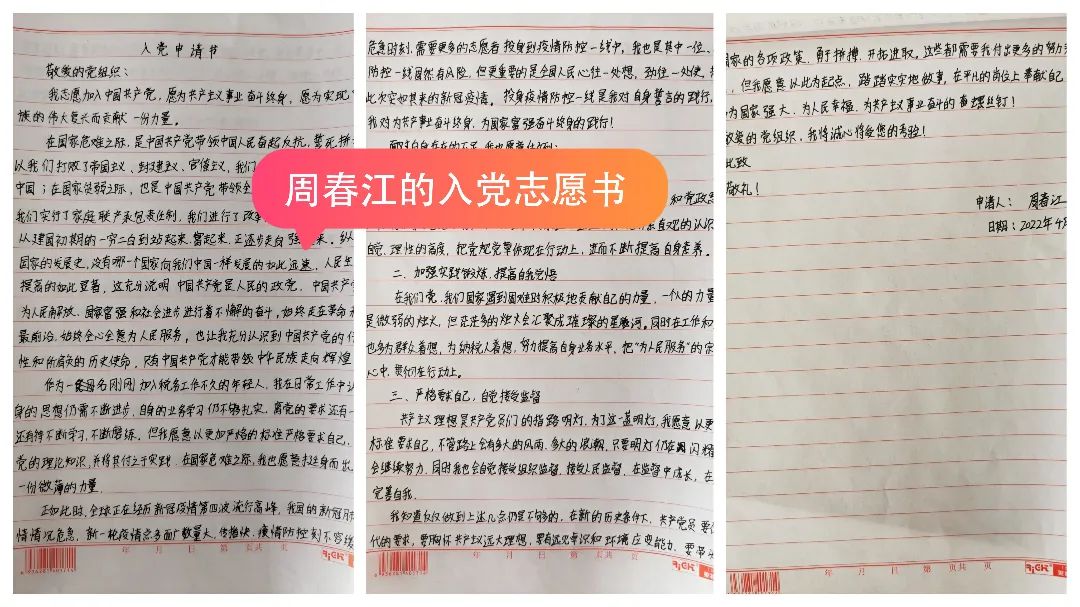 入党申请书
敬爱的党组织：
我志愿加入中国共产党，愿为共产主义事业奋斗终身，愿为实现
族的伟大复兴而贡献一份力量。
在国家危难之际，是中国共产党带领中国人民奋起反抗，誓死拼
以我们打败了帝国主义、封建主义、官僚主义，我们
中国；在国家贫弱之际，也是中国共产党带领全
我们实行了家庭联产承包责任制，我们进行了改革
从建国初期的一穷二白到站起来、富起来，正逐步走向强起来。纵
国家的发展史，没有哪一个国家向我们中国一样发展的如此迅速，人民生
提高的如此显著，这充分说明中国共产党是人民的政党，中国共产
为人民解放、国家富强和社会进步进行着不懈的奋斗，始终走在革命
最前沿，始终全心全意为人民服务，也让我充分认识到中国共产党的
性和所肩负的历史使命，只有中国共产党才能带领中华民族走向辉煌
作为一名刚刚加入税务工作不久的年轻人，我在日常工作中
身的思想仍需不断进步，自身的业务学习仍不够扎实，离党的要求还有一
还有待不断学习，不断磨练。但我愿意以更加严格的标准严格要求自己，
党的理论知识，并将其付之于实践，在国家危难之际，我也愿意挺身而出
一份微薄的力量。
正如此时，全球正在经历新冠疫情第四波流行高峰，我国的新冠
情情况危急，新一轮疫情点多面广数量大、传播快，疫情防控刻不容缓
年 月 日 第 页共 页
6936781405174
危急时刻，需要更多的志愿者投身到疫情防控一线中，我也是其中一位、
防控一线固然有风险，但更重要的是全国人民心往一处想，劲往一处使，
此次突如其来的新冠疫情。投身疫情防控一线是我对自身誓言的践行，
我对为共产事业奋斗终身、为国家富强奋斗终身的践行！
面对自身存在的不足，我也愿意做到：
周春江的入党志愿书
和党政思
直观的认识
自觉、理性的高度，把党规党章体现在行动上，进而不断提高自身素养。
二、加强实践锻炼，提高自我觉悟
在我们党、我们国家遇到困难时积极地贡献自己的力量，一个人的力量
是微弱的烛火，但是许多的烛火会汇聚成璀璨的星河。同时在工作和
也多为群众着想，为纳税人着想，努力提高自身业务水平，把“为人民服务”的宗
心中，践行在行动上。
三、严格要求自己，自觉接受监督
共产主义理想是共产党员们的指路明灯，为了这一盏明灯，我愿意以更
标准要求自己，不管路上会有多大的风雨、多大的浪潮，只要明灯仍在闪耀
会继续努力。同时我也会自觉接受组织监督，接受人民监督，在监督中成长，在
完善自我。
我知道仅仅做到上述几条仍是不够的，在新的历史条件下，共产党员要
代的要求，要胸怀共产主义远大理想，要有远见卓识和环境应变能力，要带头
年 月 日 第 页共 页
6936781405174
国家的各项政策，勇于拼搏、开拓进取，这些都需要我付出更多的努力
，但我愿意以此为起点，踏踏实实地做事，在平凡的岗位上奉献自己
为国家强大、为人民幸福，为共产主义事业奋斗的螺丝钉！
敬爱的党组织，我将诚心接受您的考验！
此致
敬礼！
申请人：周春江
日期：2022年4月
年 月 日 第 页共 页